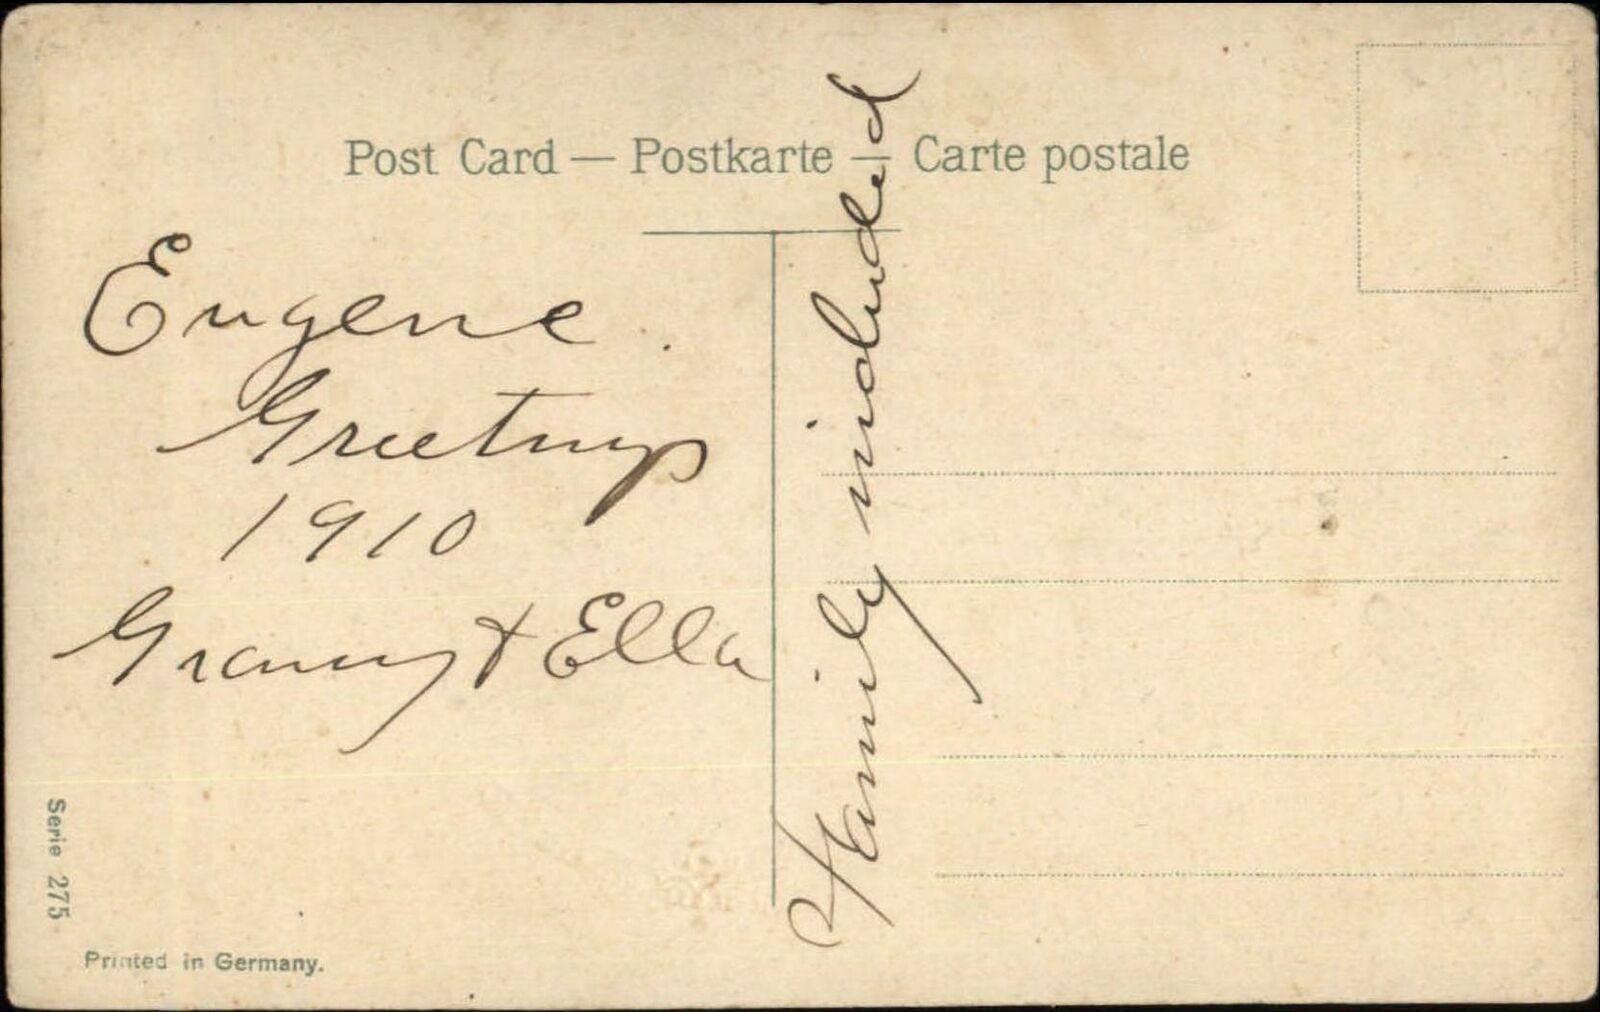 Post Card — Postkarte — Carte postale
Eugene.
Greetings
1910
Granny & Ella
Family included
Serie 275
Printed in Germany.